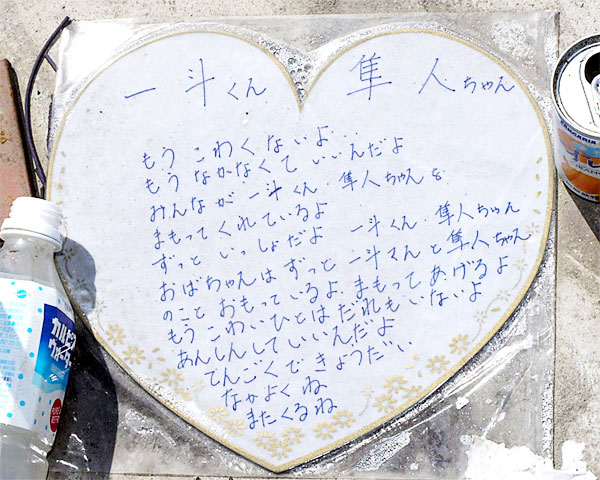 一斗くん 隼人ちゃん
もうこわくないよ..
もうなかなくていいんだよ
みんなが一斗くん・隼人ちゃんを
まもってくれているよ
ずっといっしょだよ 一斗くん・隼人ちゃん
おばちゃんはずっと一斗くんと隼人ちゃん
のことおもっているよ、まもってあげるよ
もうこわいひとはだれもいないよ
あんしんしていいんだよ
てんごくできょうだい
なかよくね
またくるね
カルピス
ウォーター
SANGARIA